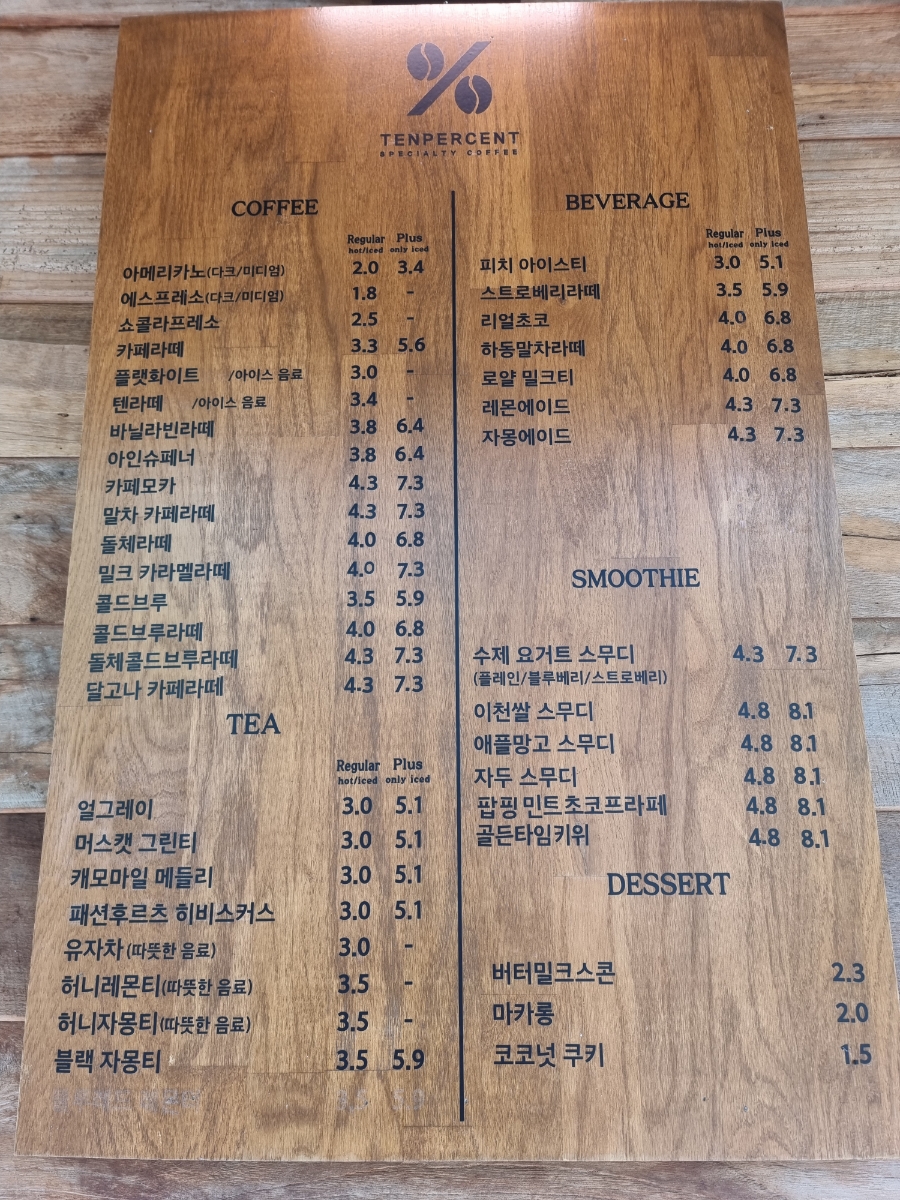 %
TENPERCENT
SPECIALTY COFFEE
COFFEE
Regular Plus
hot/iced only iced
아메리카노(다크/미디엄) 2.0 3.4
에스프레소(다크/미디엄) 1.8 -
쇼콜라프레소 2.5 -
카페라떼 3.3 5.6
플랫화이트 /아이스 음료 3.0 -
텐라떼 /아이스 음료 3.4 -
바닐라빈라떼 3.8 6.4
아인슈페너 3.8 6.4
카페모카 4.3 7.3
말차 카페라떼 4.3 7.3
돌체라떼 4.0 6.8
밀크 카라멜라떼 4.0 7.3
콜드브루 3.5 5.9
콜드브루라떼 4.0 6.8
돌체콜드브루라떼 4.3 7.3
달고나 카페라떼 4.3 7.3
TEA
Regular Plus
hot/iced only iced
얼그레이 3.0 5.1
머스캣 그린티 3.0 5.1
캐모마일 메들리 3.0 5.1
패션후르츠 히비스커스 3.0 5.1
유자차 (따뜻한 음료) 3.0 -
허니레몬티(따뜻한 음료) 3.5 -
허니자몽티(따뜻한 음료) 3.5 -
블랙 자몽티 3.5 5.9
BEVERAGE
Regular Plus
hot/iced only iced
피치 아이스티 3.0 5.1
스트로베리라떼 3.5 5.9
리얼초코 4.0 6.8
하동말차라떼 4.0 6.8
로얄 밀크티 4.0 6.8
레몬에이드 4.3 7.3
자몽에이드 4.3 7.3
SMOOTHIE
수제 요거트 스무디 4.3 7.3
(플레인/블루베리/스트로베리)
이천쌀 스무디 4.8 8.1
애플망고 스무디 4.8 8.1
자두 스무디 4.8 8.1
팝핑 민트초코프라페 4.8 8.1
골든타임키위 4.8 8.1
DESSERT
버터밀크스콘 2.3
마카롱 2.0
코코넛 쿠키 1.5